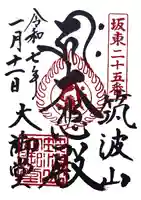 坂東二十五番
筑波山
大悲殿
大御堂
令和七年
一月十一日